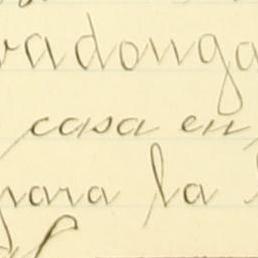 vadonga
casa en
para la